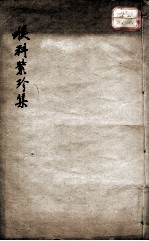 眼科紫珍集